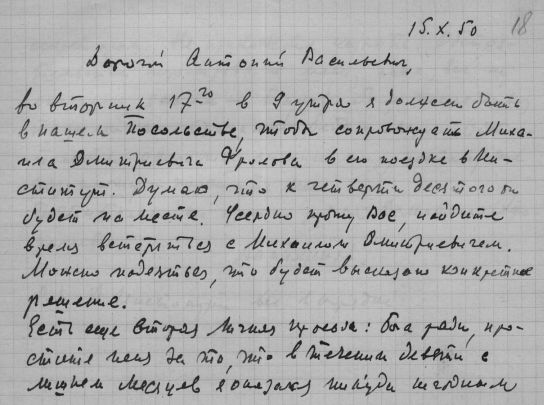 15.X.50 18
Дорогой Антоний Васильевич,
во вторник 17го в 9 утра я должен быть
в нашем Посольстве, чтобы сопровождать Миха-
ила Дмитриевича Фролова в его поездке в Ин-
ститут. Думаю, что к четверти десятого он
будет на месте. Усердно прошу Вас, найдите
время встретиться с Михаилом Дмитриевичем.
Можно надеяться, что будет высказано конкретное
решение.
Есть еще вторая личная просьба: бога ради, про-
стите меня за то, что в течении девяти с
лишнем месяцев я оказался никуда не годным